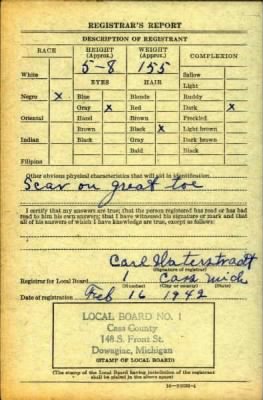 REGISTRAR'S REPORT
DESCRIPTION OF REGISTRANT
RACE HEIGHT (Approx.) WEIGHT (Approx.) COMPLEXION
5-8 155
White Sallow
EYES HAIR Light
Negro X Blue Blonde Ruddy
Gray X Red Dark X
Oriental Hazel Brown Freckled
Brown Black X Light brown
Indian Black Gray Dark brown
Bald Black
Filipino
Other obvious physical characteristics that will aid in identification
Scar on great toe
I certify that my answers are true; that the person registered has read or has had
read to him his own answers; that I have witnessed his signature or mark and that
all of his answers of which I have knowledge are true, except as follows:
Carl
(Signature of registrar)
Registrar for Local Board 1 Cass Mich
(Number) (City or county) (State)
Date of registration Feb 16 1942
LOCAL BOARD NO. 1
Cass County
148 S. Front St.
Dowagiac, Michigan
(STAMP OF LOCAL BOARD)
(The stamp of the Local Board having jurisdiction of the registrant
shall be placed in the above space.)